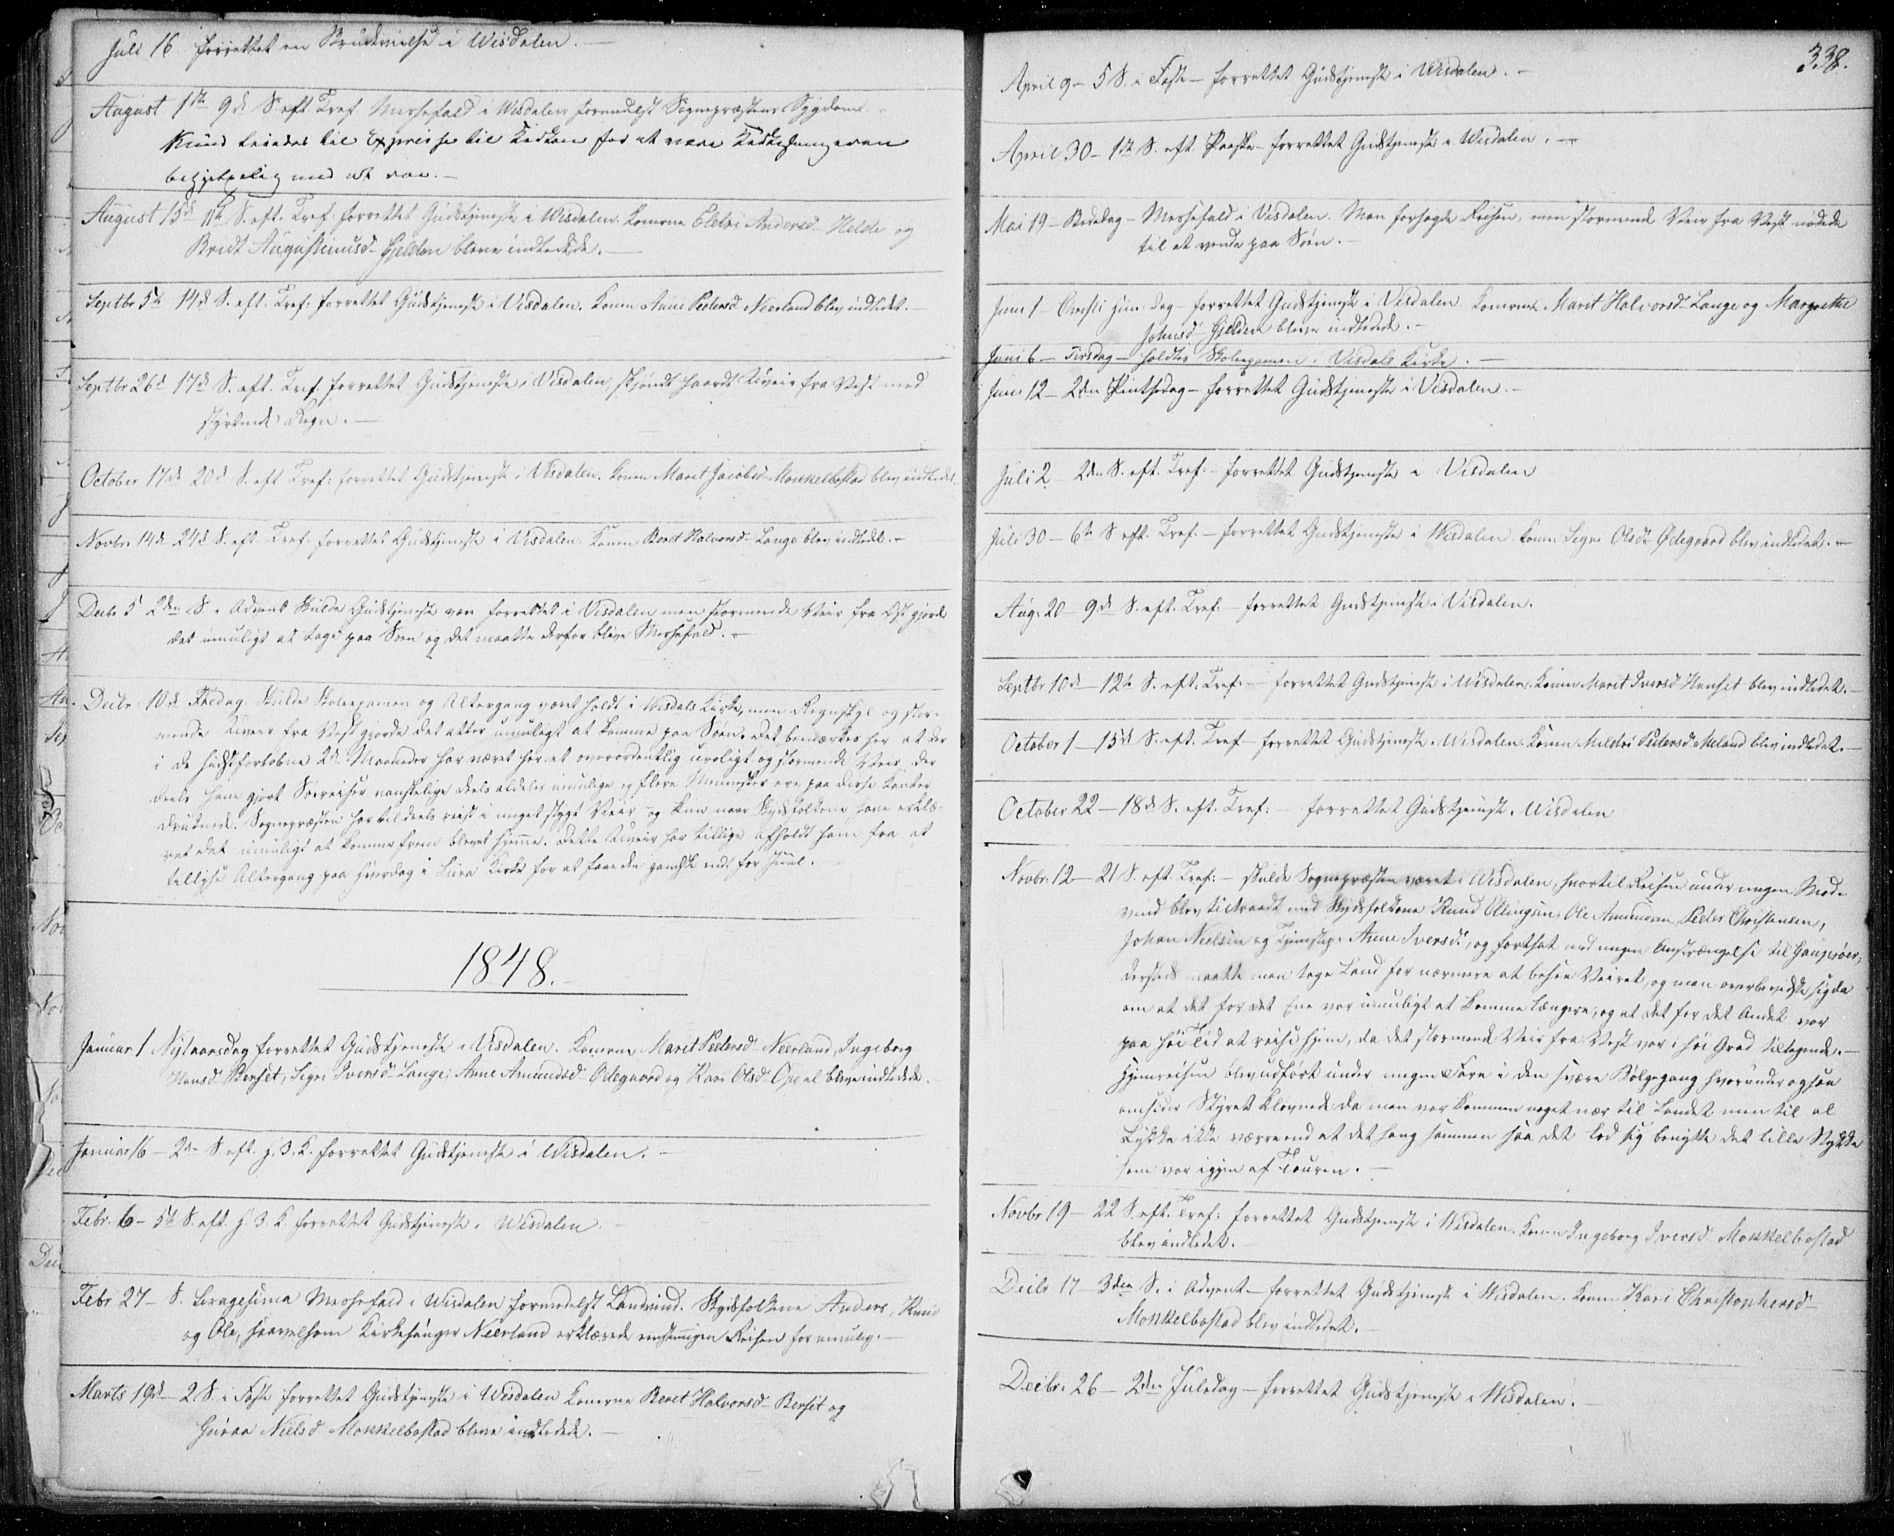 Juli 16 forrettet en Brudevielse i Wisdalen. —
August 1ste 9de S. eft. Tref. Messefald i Wisdalen formedelst Sognepræstens Sygdom.
Knud til Expresse til for at være Kirkesangeren
med at
August 15de 11te S. eft. Tref. forrettet Gudstjeneste i Wisdalen. Konerne Eldri Andersd. Helde og
Bridt Augustinusd. Gjelden bleve indledede. —
Septbr 5te 14de S. eft. Tref. forrettet Gudstjeneste i Visdalen. Konen Anne Pedersd. Neerland blev indledet. —
Septbr 26de 17de S. eft. Tref. forrettet Gudstjeneste i Visdalen, skjøndt haardt Uveir fra Vest med
styrtende Regn. —
October 17de 20de S. eft. Tref. forrettet Gudstjeneste i Visdalen. Konen Marit Jacobsd. Monkelbostad blev indledet.
Novbr 14de 24de S. eft. Tref. forrettet Gudstjeneste i Visdalen. Konen Beret Halvorsd. Lange blev indledet. —
Decbr 5 2den S. i Advent skulde Gudstjeneste være forrettet i Visdalen men stormende Veir fra Vest gjorde
det umuligt at tage paa Søen og det maatte derfor blive Messefald. —
Decbr 10de Fredag skulde Skoleexamen og Altergang været holdt i Visdals Kirke, men Regnskyl og stor-
mende Uveir fra Vest gjorde det atter umuligt at komme paa Søen. Det bemærkes her at der
i de sidstforløbne 2de Maaneder har været her et overordentlig uroligt og stormende Veir, der
deels have gjort Søreiser vanskelige deels aldeles umulige og flere Mennesker ere paa disse Kanter
druknede. Sognepræsten har tildeels reist i meget stygt Veir og kun naar Skydsfolkene have erklæ-
ret det umuligt at komme frem blevet hjemme. Dette Uveir har tillige afholdt ham fra at
tillyse Altergang paa Hverdag i Kirke for at faae den ganske endt før Juul. —
1848. —
Januar 1 Nytaarsdag forrettet Gudstjeneste i Visdalen. Konerne Marit Pedersd. Neerland, Ingeborg
Hansd. Berset, Segri Iversd. Lange, Anne Amundsd. Ødegaard og Kari Olsd. Opdal bleve indledede. —
Januar 16 — 2den S. eft. H. 3. K. forrettet Gudstjeneste i Wisdalen. —
Febr. 6 — 5te S. eft. H. 3. K. forrettet Gudstjeneste i Wisdalen.
Febr 27 — S. Sexagesima Messefald i Wisdalen formedelst Landvind. Skydsfolkene Anders, Knud
og Ole, saavelsom Kirkesanger Neerland erklærede eenstemmigen Reisen for umulig. —
Marts 19de — 2. S. i Faste forrettet Gudstjeneste i Wisdalen Konerne Beret Halvorsd. Berset og
Guroa Nielsd. Monkelbostad bleve indledede. —
338.
April 9 — 5 S. i Faste — forrettet Gudstjeneste i Wisdalen. —
April 30 — 1ste S. eft. Paaske — forrettet Gudstjeneste i Wisdalen. —
Mai 19 — Bededag — Messefald i Visdalen. Man forsøgte Reisen, men stormende Veir fra Vest nødede
til at vende paa Søen. —
Juni 1 — Christi Him. Dag — forrettet Gudstjeneste i Visdalen. Konerne Marit Halvorsd. Lange og Margrethe
Johnsd. Gjelden bleve indledede. —
Juni 6 — Tirsdag — holdtes Skoleexamen i Visdals Kirke. —
Juni 12 — 2den Pintsedag — forrettet Gudstjeneste i Visdalen. —
Juli 2 2den S. eft. Tref. — forrettet Gudstjeneste i Visdalen
Juli 30 — 6te S. eft. Tref. — forrettet Gudstjeneste i Wisdalen. Konen Segri Olsdr. Ødegaard blev indledet. —
Aug. 20 — 9de S. eft. Tref. — forrettet Gudstjeneste i Visdalen.
Septbr 10de — 12te S. eft. Tref. — forrettet Gudstjeneste i Wisdalen. Konen Marit Iversd. Hanset blev indledet. —
October 1 — 15de S. eft. Tref — forrettet Gudstjeneste i Wisdalen. Konen Meldri Pedersd. Meland blev indledet. —
October 22 — 18de S. eft. Tref: — forrettet Gudstjeneste i Wisdalen
Novbr 12 — 21 S. eft. Tref: — skulde Sognepræsten været i Wisdalen, hvortil Reisen under megen Mod-
vind blev tiltraadt med Skydsfolkene Knud Ellingsen, Ole Amundsen, Peder Christensen,
Johan Nielsen og Tjenestep. Anne Iversd., og fortsat med megen Anstrængelse til
dersteds maatte man tage Land for nærmere at besee Veiret, og man overbeviiste sig da
om at det for det Ene var umuligt at komme længere, og at det for det Andet var
paa høi Tid at reise hjem, da det stormende Veir fra Vest var i høi Grad tiltagende. —
Hjemreisen blev udført under megen Fare i den svære Bølgegang hvorunder ogsaa
omsider Styret kløvnede da man var kommen noget nær til Landet men til al
Lykke ikke værre end at det hang sammen saa det lod sig benytte det lille Stykke
som var igjen af Touren. —
Novbr 19 — 22 S. eft. Tref: forrettet Gudstjeneste i Wisdalen. Konen Ingeborg Iversd. Monkelbostad
blev indledet. —
Decbr 17 — 3den S. i Advent — forrettet Gudstjeneste i Wisdalen. Konen Kari Christophersd.
Monkelbostad blev indledet. —
Decbr. 26 — 2den Juledag — forrettet Gudstjeneste i Wisdalen. —